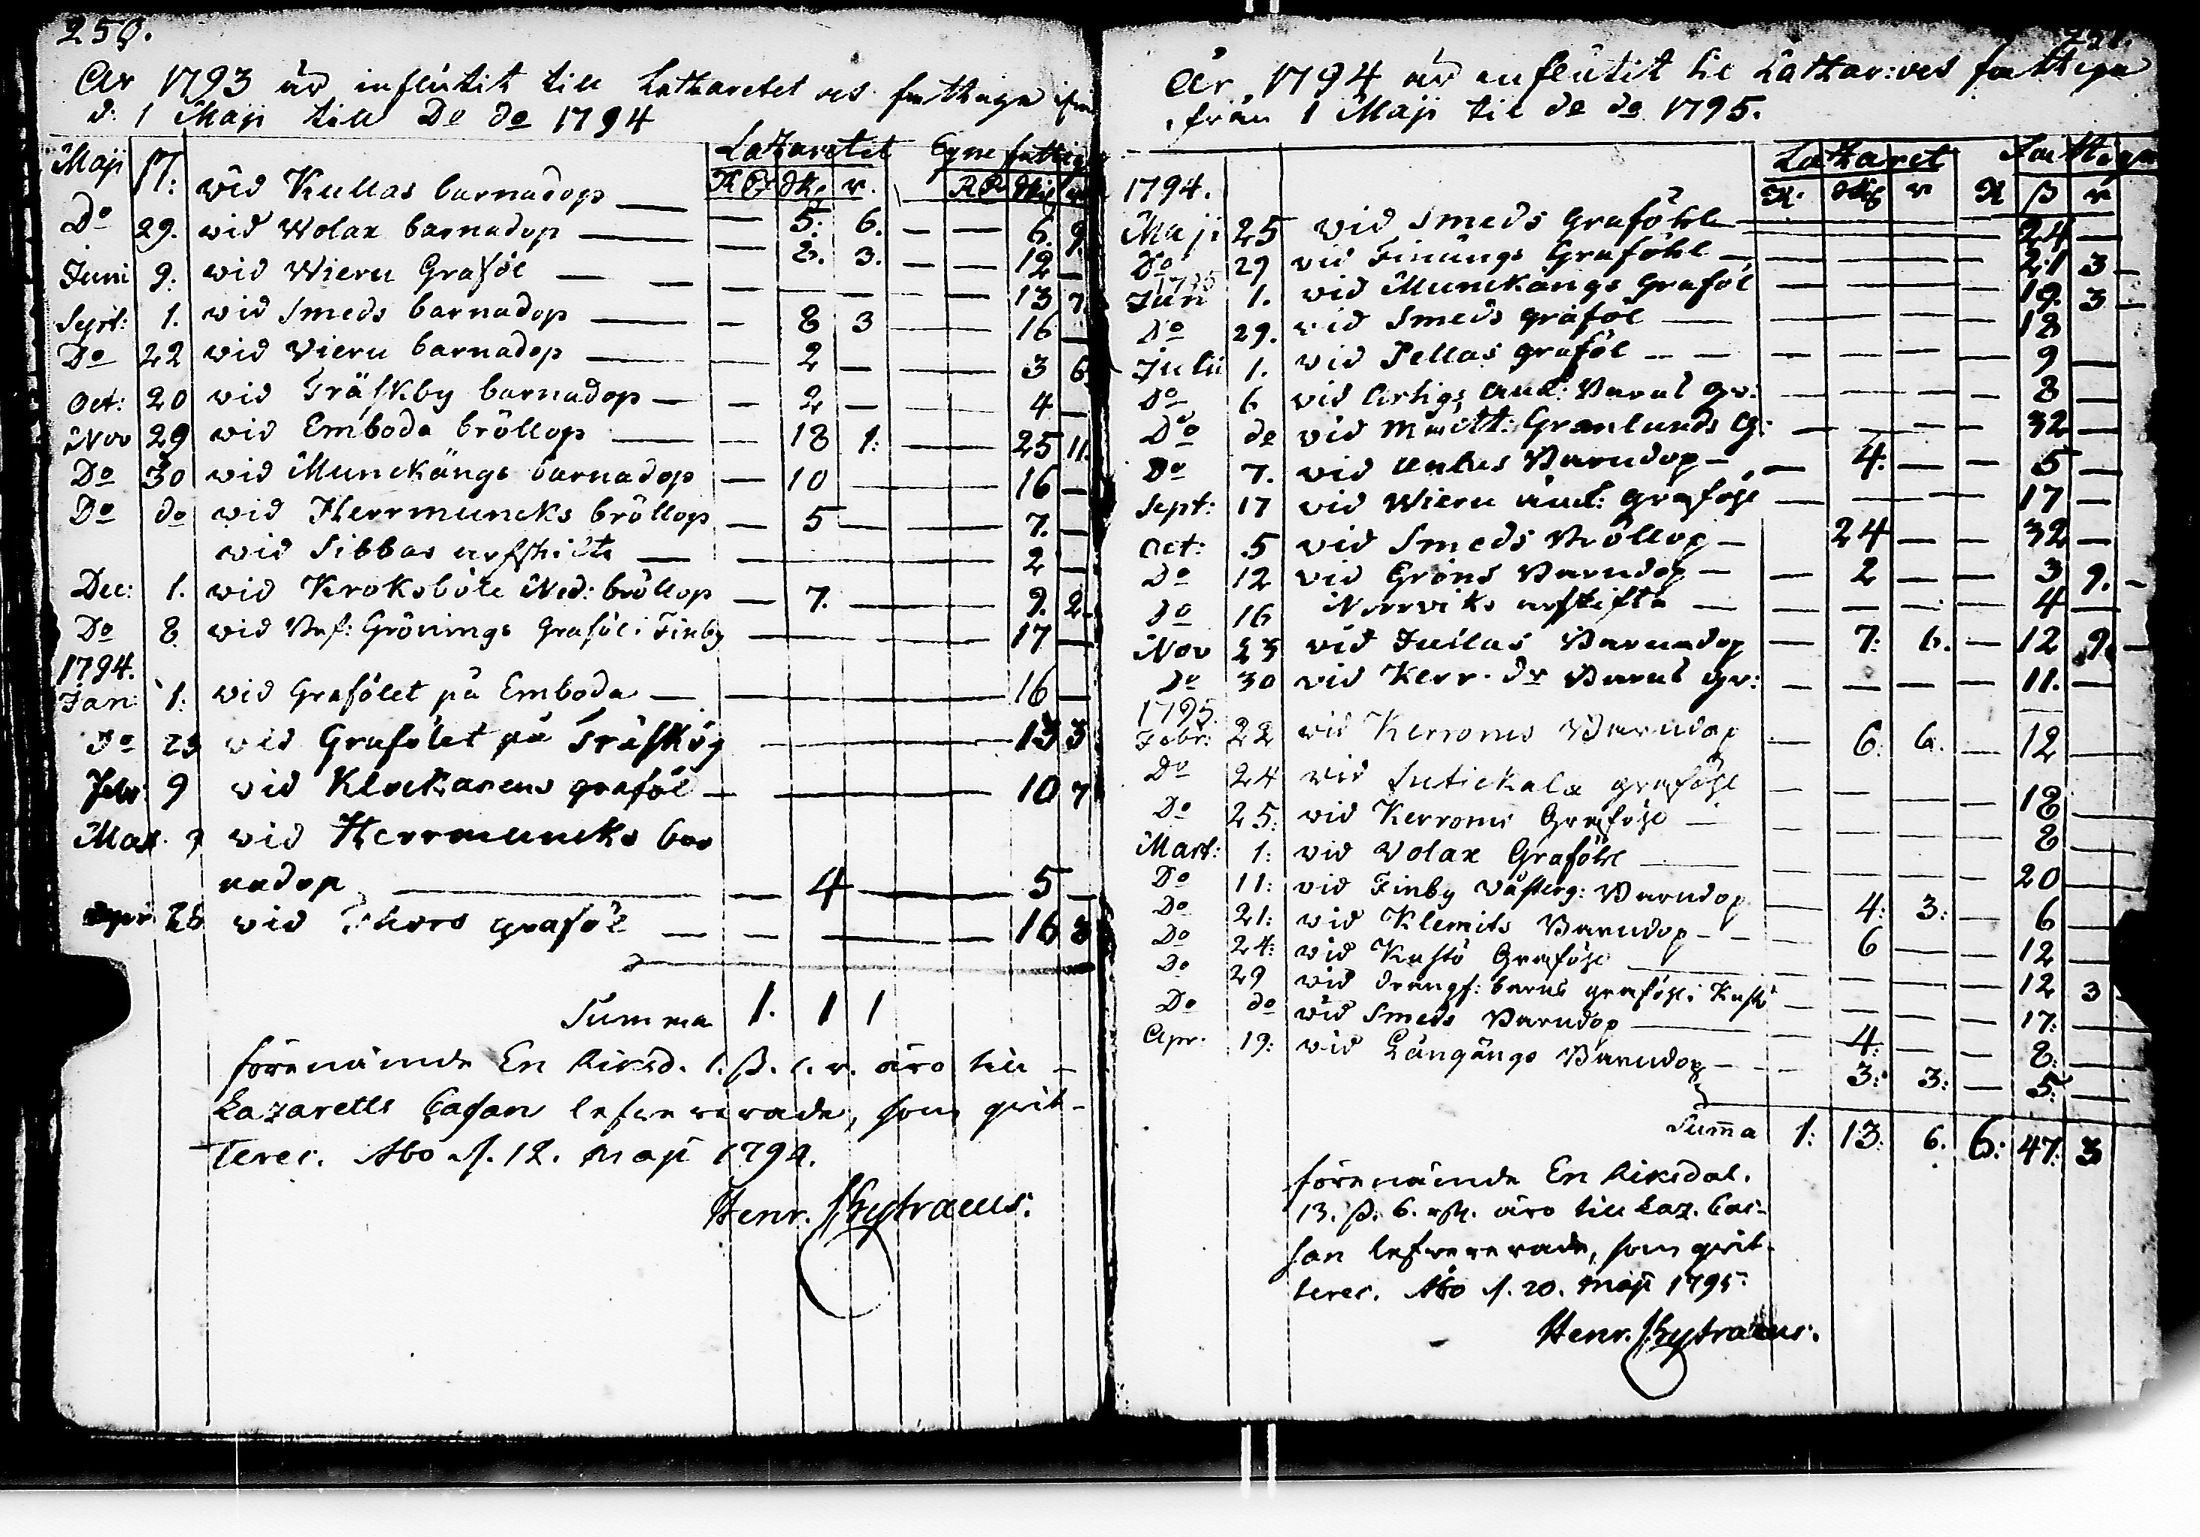 250.
År 1793 är influtit till Latzaretet och fattiga ifrån
d. 1 Maji till De do 1794
Latzaretet Egne fattiga
Rd sk. r. Rd sk r
Maji 17: wid Kullas barnadop — — 5. 6. — — 6. 9.
Do 29. wid Wolax barnadop — — 2. 3. — — 12 —
Juni 9. wid Wieru Graföl — — — — — — 13 7.
Sept: 1. wid Smeds barnadop — — 8 3 — — 16 —
Do 22 wid Vieru barnadop — — 2 — — — 3 6.
Oct: 20 wid Träskby barnadop — — 2 — — — 4 —
Nov 29 wid Emboda bröllop — — 18 1. — — 25 11.
Do 30 wid Munckängs barnadop — 10 — — — 16 —
Do do wid Herrmuncks bröllop — 5 — — — 7. —
wid Sibbas arfskifte — — — — — 2 —
Dec: 1. wid Kroksböle Ned: bröllop — 7. — — — 9. 2.
Do 8 wid Grönings Graföl i Finby — — — — — 17 —
1794.
Jan: 1: wid Grafölet på Emboda — — — — — 16 —
Do 25 wid Grafölet på — — — 13 3
Febr: 9 wid Klockarens graföl — — — 10 7
Mart. 9 wid Herrmuncks bar
nadop — — 4 — — 5 —
Apr: 26 wid graföl — — — — 16 3
Summa 1. 1 1
förenämde En Riksd. 1. ß. 1. r. äro till
Lazaretts Cassan lefvererade, som qvit-
teres. Åbo d. 12. Maji 1794.
Henr. Skytraeus.
251.
År 1794 är influtit til Latzar: och fattiga
från 1 Maji til de do 1795.
Latzaret Fattiga
R. sk r R ß r
1794.
Maji 25 vid Smeds graföhl — — — — — 24 —
Do 29 vid Finängs Graföhl — — — — — 21 3
1795
Jun 1. vid Munckängs Graföl — — — — — 19. 3
Do 29. vid Smeds graföl — — — — — 18
Julii 1. vid Pellas graföl — — — — — 9 —
Do 6 vid Barns gr: — — — — — 8 —
Do do vid Grönlunds G: — — — — — 32 —
Do 7. vid Barndop — — 4. — — 5 —
Sept: 17 vid Wieru Graföhl — — — — — 17 —
Oct: 5 vid Smeds Bröllop — 24 — — 32 —
Do 12 vid Gröns Barndop — — 2 — — 3 9.
Do 16 Norrviks arfskifte — — — — — 4 —
Nov 23 vid Jullas Barnadop — 7: 6. — 12 9.
Do 30 vid Kerr. Do Barns gr: — — — — 11. —
1795.
Febr: 22 vid Kerroms Barndop — 6. 6. — 12 —
Do 24 vid graföhl — — — — 18 —
Do 25. vid Kerroms Graföhl — — — — — 8 —
Mart: 1: vid Volax Graföhl — — — — — 20 —
Do 11: vid Finby Västerg: Barndop — 4: 3: — 6 —
Do 21: vid Klemits Barndop — — 6 — — 12 —
Do 24: vid Kustö Graföhl — — — — — 12 3
Do 29 vid drängs: barns graföhl i Kustö — — — — 17: —
Do do vid Smeds Barndop — — 4: — — 8: —
Apr: 19: vid Långängs Barndop — — 3: 3: — 5: —
Summa 1: 13: 6. 6: 47: 3
förenämde En Riksdal.
13. ß. 6. rst. äro till Laz. Cas-
san lefvererade, som qvit-
teres. Åbo d. 20. Maji 1795.
Henr. Skytraeus.